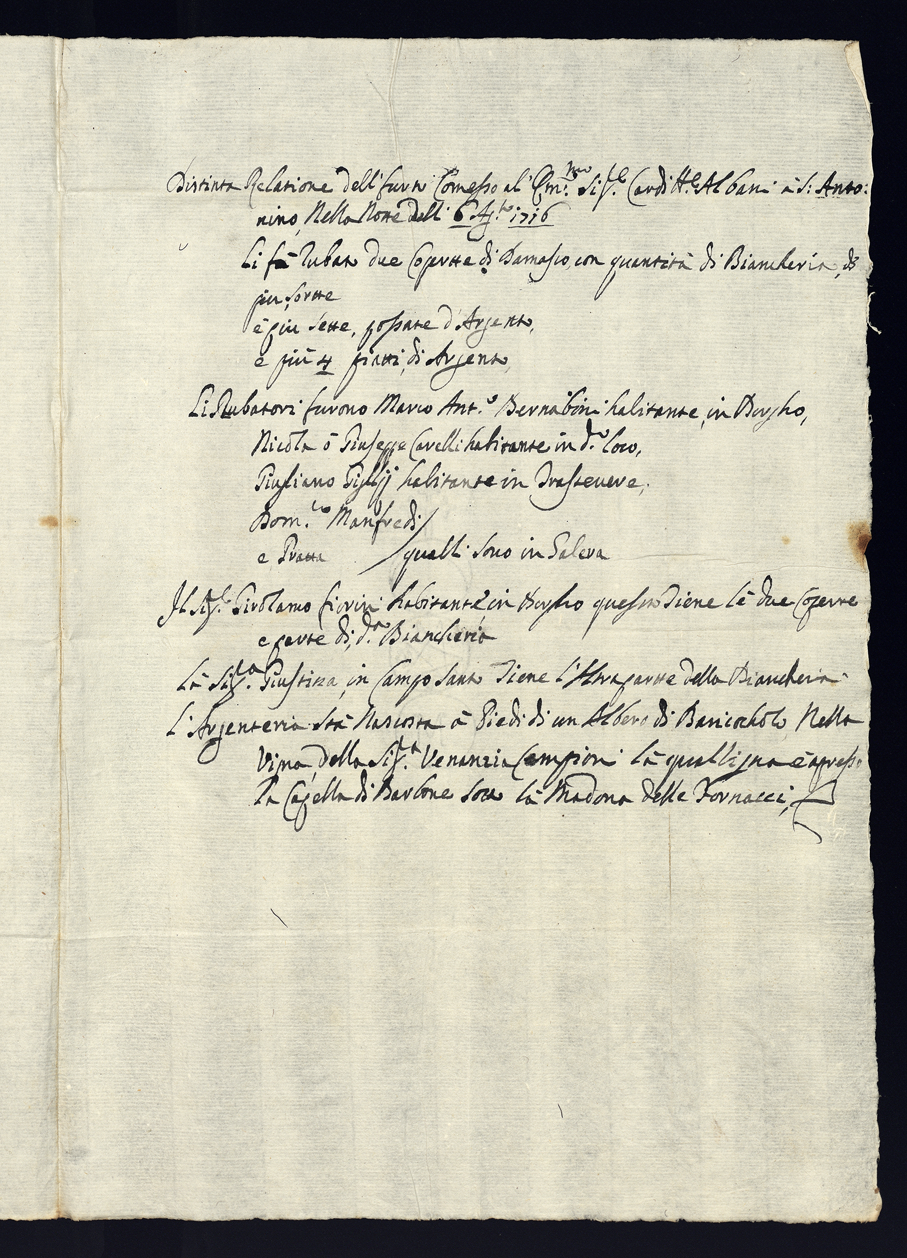 Distinta Relatione dell' furto Comesso al' Em.mo Sig.e Cardi.le Albani à S: Anto:
nino, Nella Notte dell' 6 Ag.to 1716
Li fù Rubato due Coperte di Damasco, con quantità di Biancheria, di
più sortte
è più sette, possate d'Argento,
e più 4 piatti, di Argento,
Li Rubatori furono Marco Ant.o Bernabini habitante, in Borgho,
Nicola ò Giuseppe Cavelli habitante in d.o loco,
Giugliano Giglij habitante in Trastevere,
Dom.co Manfredi
e Pratta qualli sono in Galera
Il Sig.e Girolamo fiorini habitante in Borgho questo Tiene lè due Coperte
e parte di, d.a Biancheria
Là Sig.a Giustina, in Campo Santo Tiene l'Altra partte della Biancheria
L'Argenteria stà Nascosta à Piedi di un Albero di Baricocholo, Nella
Vigna, della Sig.a Venanzia Campioni là qual Vigna è apress:
la Capella di Barbone sotto là Madona delle Fornacci,